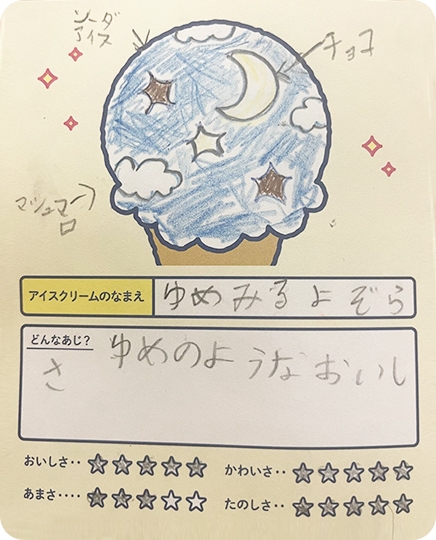 ソーダ
アイス
チョコ
マシュマ
ロ
アイスクリームのなまえ
ゆめみるよぞら
どんなあじ?
ゆめのようなおいし
さ
おいしさ‥
かわいさ‥
あまさ‥‥
たのしさ‥